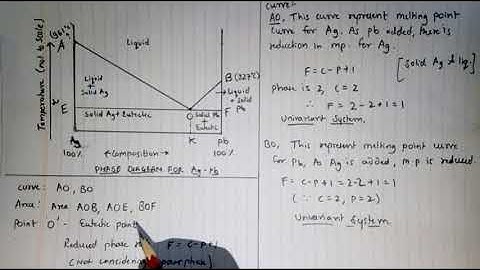 (961°C)
A
Liquid
Temperature (not to scale)
Liquid
+
Solid Ag
B(327°C)
Liquid
+ solid
Pb
E
Solid Ag + Eutectic
O
Solid Pb
+
Eutectic
F
Ag
100%
← Composition →
K
Pb
100%
PHASE DIAGRAM FOR Ag-Pb
curve: AO, BO
Area: Area AOB, AOE, BOF
Point 'O' - Eutectic point
Reduced phase F = C-P+1
(Not considering phase)
curve:
AO, This curve represent melting point
curve for Ag. As Pb added, there is
reduction in mp. for Ag.
F = C-P+1
[Solid Ag & liq.]
phase is 2, C = 2
∴ F = 2-2+1 = 1
Univariant System.
BO, This represent melting point curve
for Pb, As Ag is added, m.p is reduced.
F = C-P+1 = 2-2+1 = 1
(∵ C=2, P=2)
Univariant System